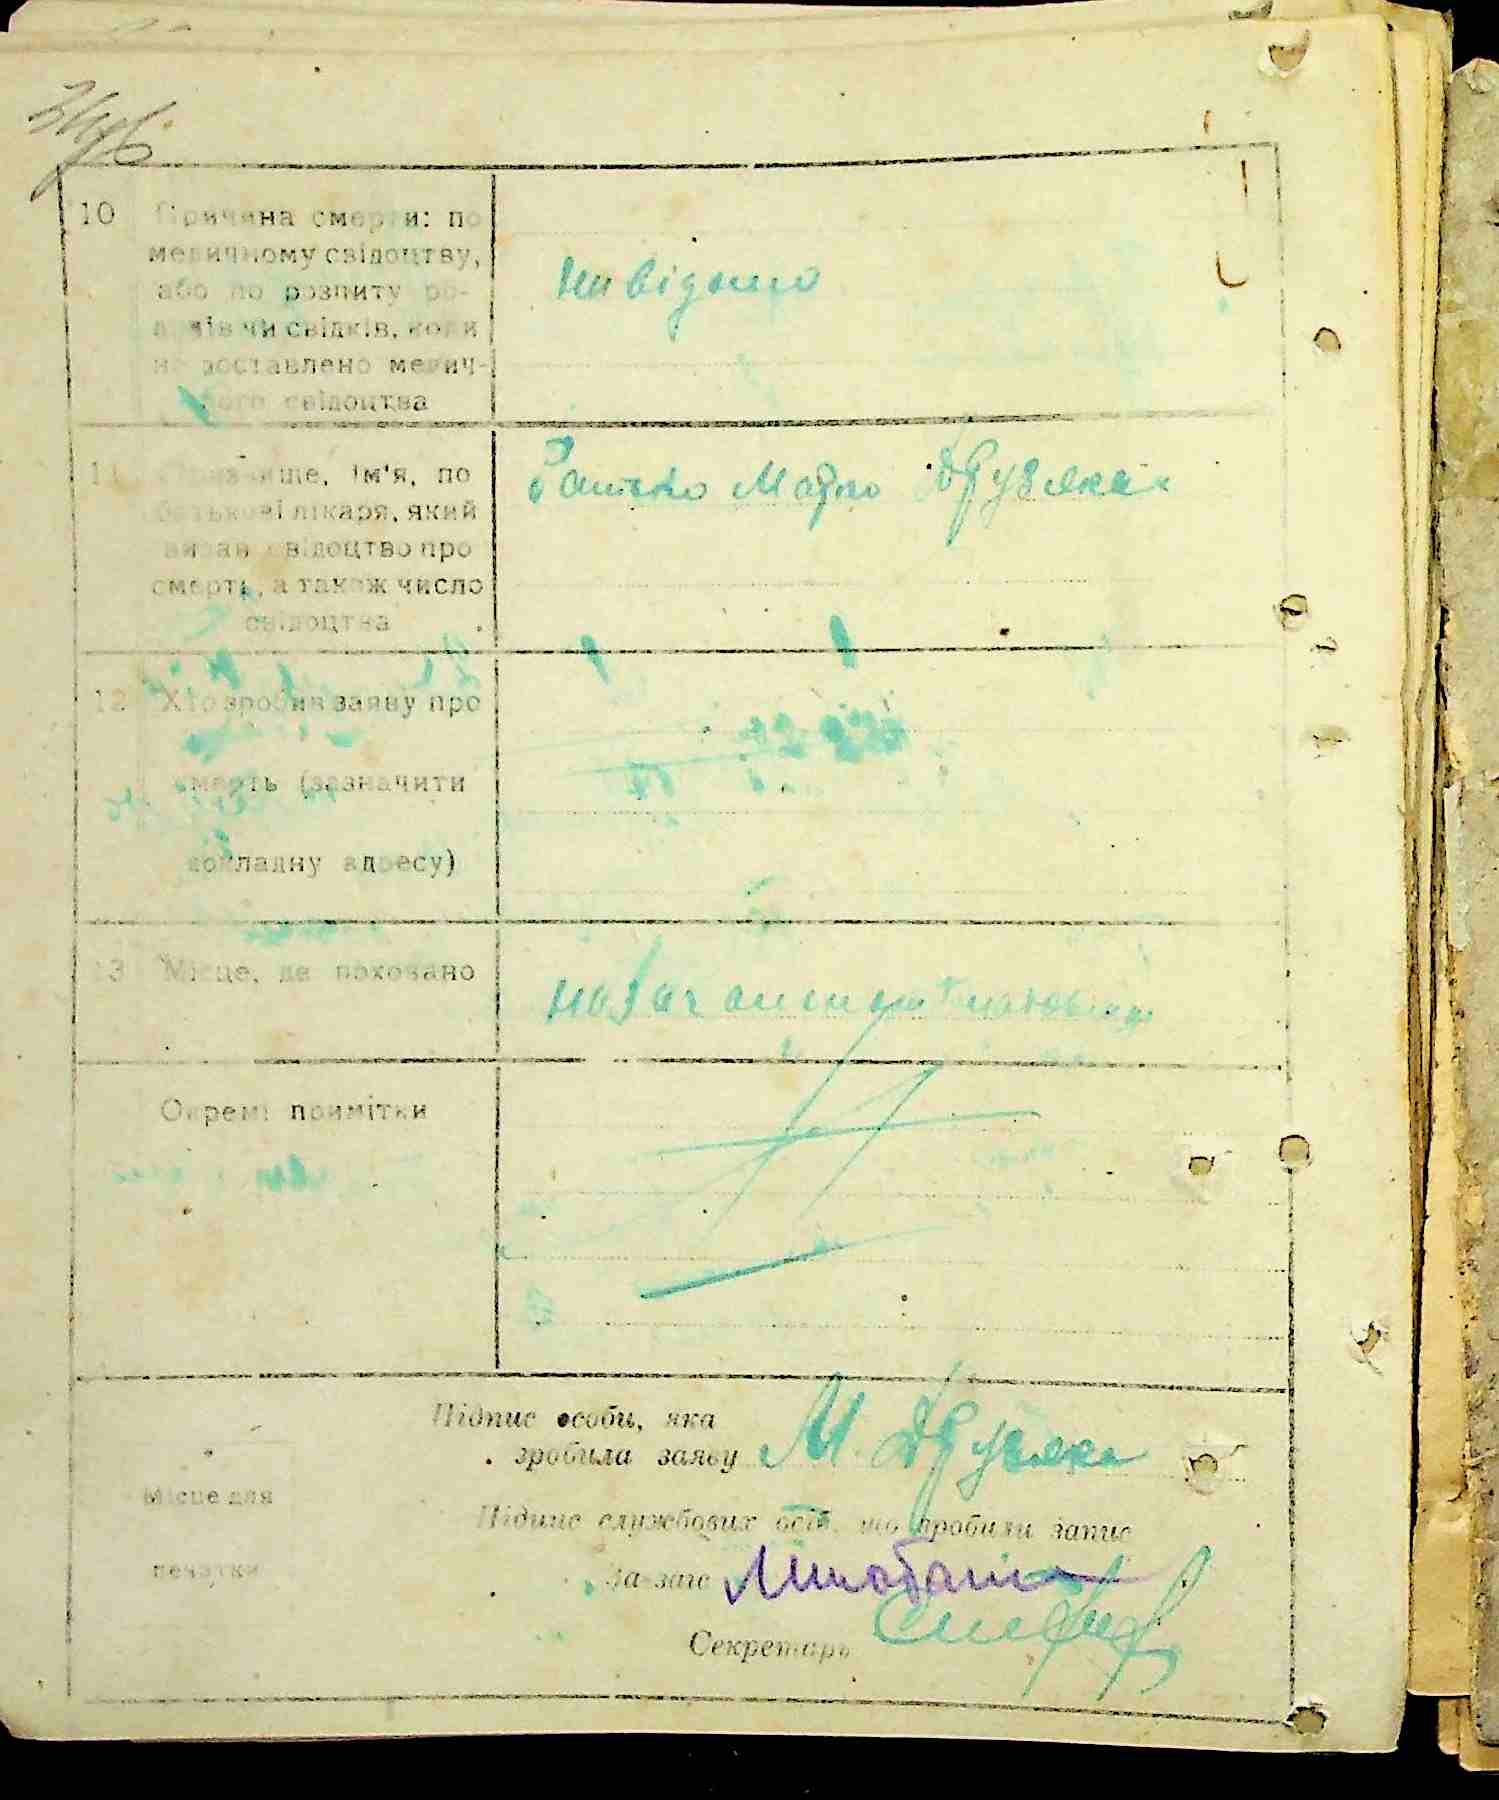 10 Причина смерти: по
медичному свідоцтву,
або по розпиту ро-
дичів чи свідків, коли
не доставлено медич-
ного свідоцтва
Ни відомо
11 Прізвище, ім'я, по
батькові лікаря, який
видав свідоцтво про
смерть, а також число
свідоцтва
Батько Марко Друзяка
12 Хто зробив заяву про
смерть (зазначити
докладну адресу)
13 Місце, де поховано
на
Окремі примітки
Підпис особи, яка
зробила заяву М Друзяка
Місце для
печатки
Підпис службових осіб, що зробили запис
За загс
Секретарь